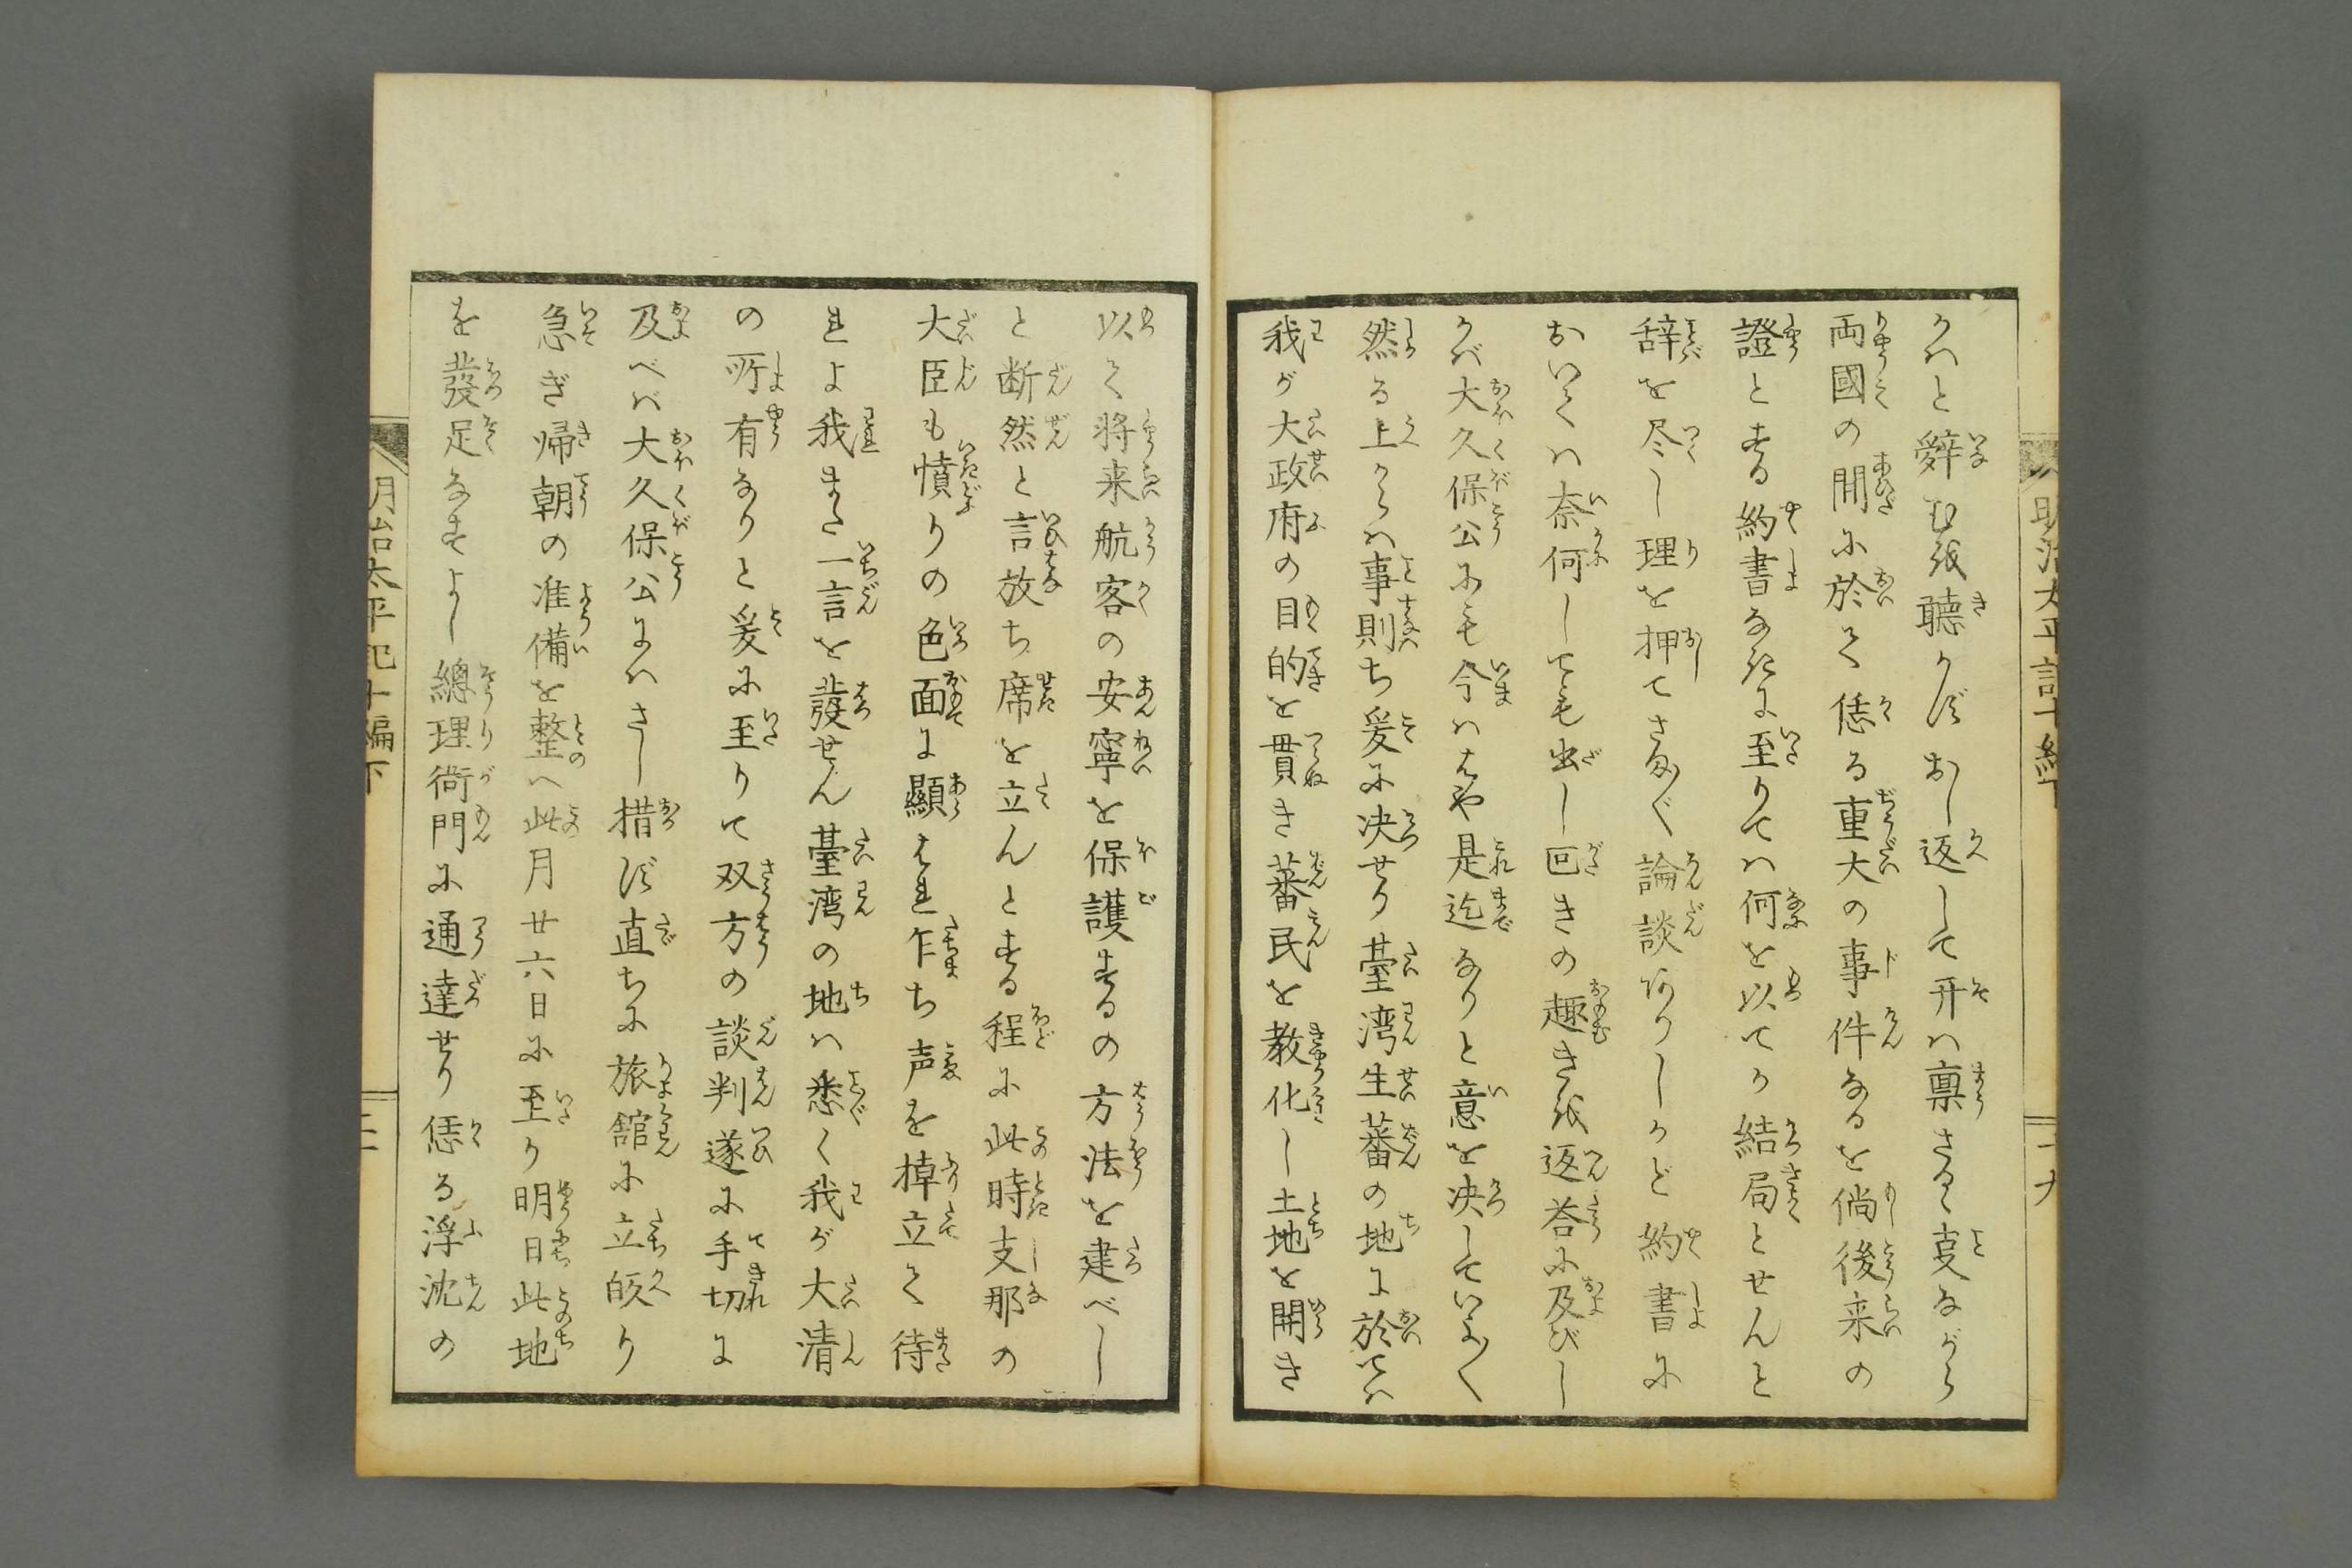 かハと辤む越聴かずおし返して开ハ稟さるゝ叓ながら
両國の間に於て恁る重大の事件なるを倘後来の
證とする約書なきに至りてハ何を以てか結局とせんと
辞を尽し理を押てさま〴〵論談ありしかど約書に
おいてハ奈何しても出し回きの趣き越返荅に及びし
かバ大久保公にも今ハはや是迄なりと意を决していふ〳〵
然る上からハ事則ち爰に决せり臺湾生蕃の地に於てハ
我が大政府の目的を貫き蕃民を教化し土地を開き
以て将来航客の安寧を保護するの方法を建べし
と断然と言放ち席を立んとする程に此時支那の
大臣も憤りの色面に顯はれ乍ち声を掉立て待
れよ我また一言を發せん臺湾の地ハ悉く我が大清
の所有なりと爰に至りて双方の談判遂に手切に
及べバ大久保公にハさし措ず直ちに旅舘に立皈り
急ぎ帰朝の准備を整へ此月廿六日に至り明日此地
を發足なすよし總理衙門に通達せり恁る浮沈の
明治太平記十編下